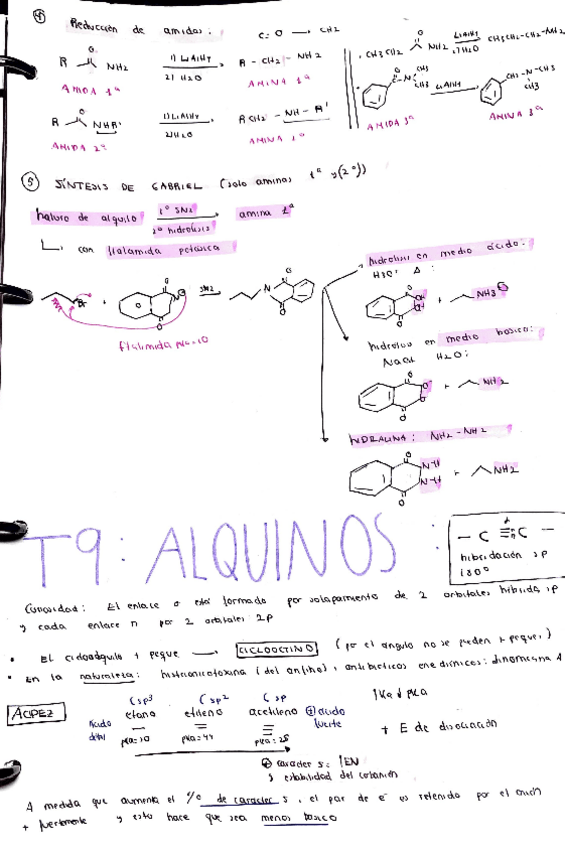 ④ Reducción de amidas. C=O → CH2
R O NH2 1) LiAlH4 2) H2O R - CH2 - NH2
AMIDA 1ª AMINA 1ª
R O NHR' 1) LiAlH4 2) H2O RCH2 - NH - R'
AMIDA 2ª
CH3CH2 O NH2 LiAlH4 H2O CH3CH2-CH2-NH2
O N CH3 CH3 LiAlH4 CH2-N-CH3 CH3
AMIDA 3ª AMINA 3ª
⑤ SÍNTESIS DE GABRIEL (solo aminas 1ª y(2ª))
haluro de alquilo 1º SN2 2º hidrolisis amina 1ª
con ftalamida potasica
Br + O N O SN2 N O O
ftalimida pka=10
hidrolisis en medio ácido:
H3O+ Δ :
O OH OH O + NH3
hidrolisis en medio basico:
NaOH H2O:
O O O O + NH2
HIDRACINA: NH2-NH2
O N-H N-H O + NH2
T9: ALQUINOS :
- C ≡ C -
hibridación sp
180º
Curiosidad: El enlace σ está formado por solapamiento de 2 orbitales híbridos sp
y cada enlace π por 2 orbitales 2p
• El cicloalquilo + peque → CICLOOCTINO (por el angulo no se pueden + peques)
• En la naturaleza: histrionicotoxina (del anfibio), antibioticos enediinicos: dinemicina A
ACIDEZ
(sp³ (sp² (sp ↑Ka ↓pKa
Ácido débil etano etileno acetileno ácido fuerte
pka=50 pka=44 pka=25 + E de disociación
⊕ caracter s: ↑EN
y estabilidad del carbanión
A medida que aumenta el % de caracter s, el par de e⁻ es retenido por el
+ fuertemente y esto hace que sea menos basico